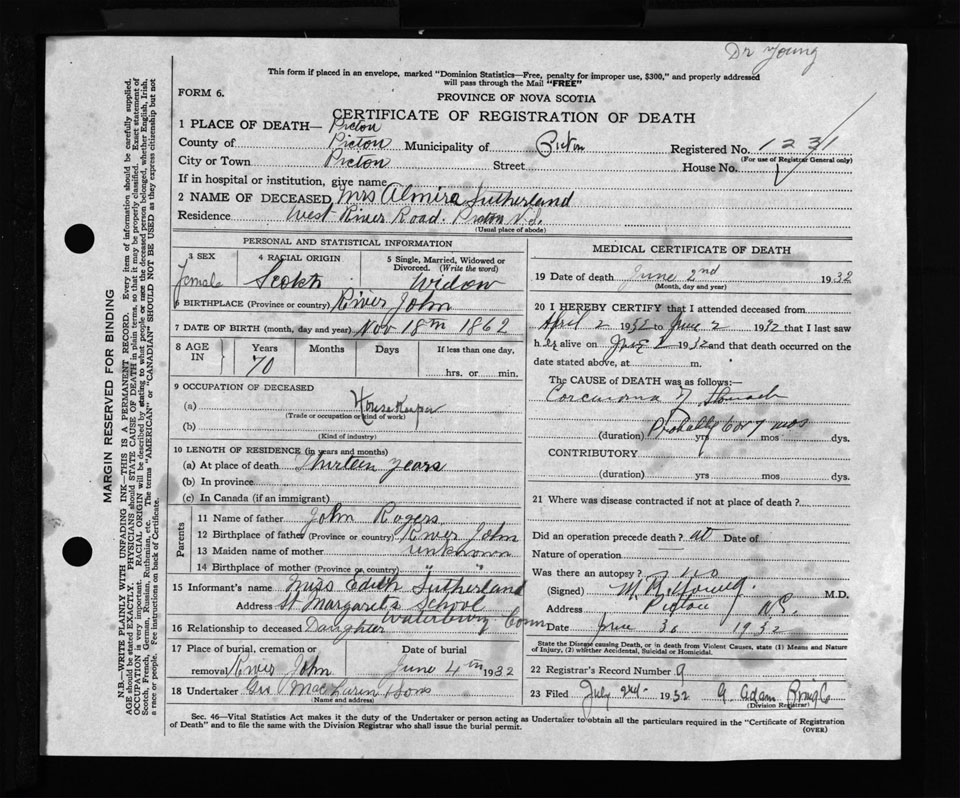 Dr Young
This form if placed in an envelope, marked "Dominion Statistics—Free, penalty for improper use, $300," and properly addressed
will pass through the Mail "FREE"
FORM 6.
PROVINCE OF NOVA SCOTIA
CERTIFICATE OF REGISTRATION OF DEATH
1 PLACE OF DEATH— Pictou
County of Pictou Municipality of Pictou Registered No. 1231
(For use of Registrar General only)
City or Town Pictou Street House No.
If in hospital or institution, give name
2 NAME OF DECEASED Mrs Almira Sutherland
Residence West River Road. Pictou N.S.
(Usual place of abode)
PERSONAL AND STATISTICAL INFORMATION
3 SEX 4 RACIAL ORIGIN 5 Single, Married, Widowed or
Divorced. (Write the word)
Female Scotch Widow
6 BIRTHPLACE (Province or country) River John
7 DATE OF BIRTH (month, day and year) Nov 18th 1862
8 AGE IN Years Months Days If less than one day,
70 hrs. or min.
9 OCCUPATION OF DECEASED
(a) Housekeeper
(Trade or occupation or kind of work)
(b)
(Kind of industry)
10 LENGTH OF RESIDENCE (in years and months)
(a) At place of death Thirteen years
(b) In province
(c) In Canada (if an immigrant)
Parents
11 Name of father John Rogers
12 Birthplace of father (Province or country) River John
13 Maiden name of mother unknown
14 Birthplace of mother (Province or country) " "
15 Informant's name Miss Edith Sutherland
Address St Margaret's School
Waterbury Conn
16 Relationship to deceased Daughter
17 Place of burial, cremation or Date of burial
removal River John June 4th 1932
18 Undertaker Mac Laren & Sons
(Name and address)
MEDICAL CERTIFICATE OF DEATH
19 Date of death June 2nd 1932
(Month, day and year)
20 I HEREBY CERTIFY that I attended deceased from
April 2 1932 to June 2 1932 that I last saw
her alive on June 1932 and that death occurred on the
date stated above, at m.
The CAUSE of DEATH was as follows:—
Carcinoma of Stomach
Probably 6 or 7 mos
(duration) yrs mos dys.
CONTRIBUTORY
(duration) yrs mos dys.
21 Where was disease contracted if not at place of death?
Did an operation precede death? Date of
Nature of operation
Was there an autopsy? no
(Signed) M.D.
Address Pictou N.S.
Date June 30 1932
State the Disease causing Death, or in death from Violent Causes, state (1) Means and
Nature of Injury, (2) whether Accidental, Suicidal or Homicidal.
22 Registrar's Record Number 9
23 Filed July 2nd 1932 Adam
(Division Registrar)
Sec. 46—Vital Statistics Act makes it the duty of the Undertaker or person acting as Undertaker to obtain all the particulars required in the "Certificate of Registration
of Death" and to file the same with the Division Registrar who shall issue the burial permit.
(OVER)
MARGIN RESERVED FOR BINDING
N.B.—WRITE PLAINLY WITH UNFADING INK—THIS IS A PERMANENT RECORD. Every item of information should be carefully supplied.
AGE should be stated EXACTLY. PHYSICIANS should STATE CAUSE OF DEATH in plain terms, so that it may be properly classified. Exact statement of
OCCUPATION is very important. RACIAL ORIGIN will be described by stating to what people or race the deceased person belonged, whether English, Irish,
Scotch, French, German, Russian, Ruthenian, etc. The terms "AMERICAN" or "CANADIAN" SHOULD NOT BE USED as they express citizenship but not
a race or people. Fee instructions on back of Certificate.